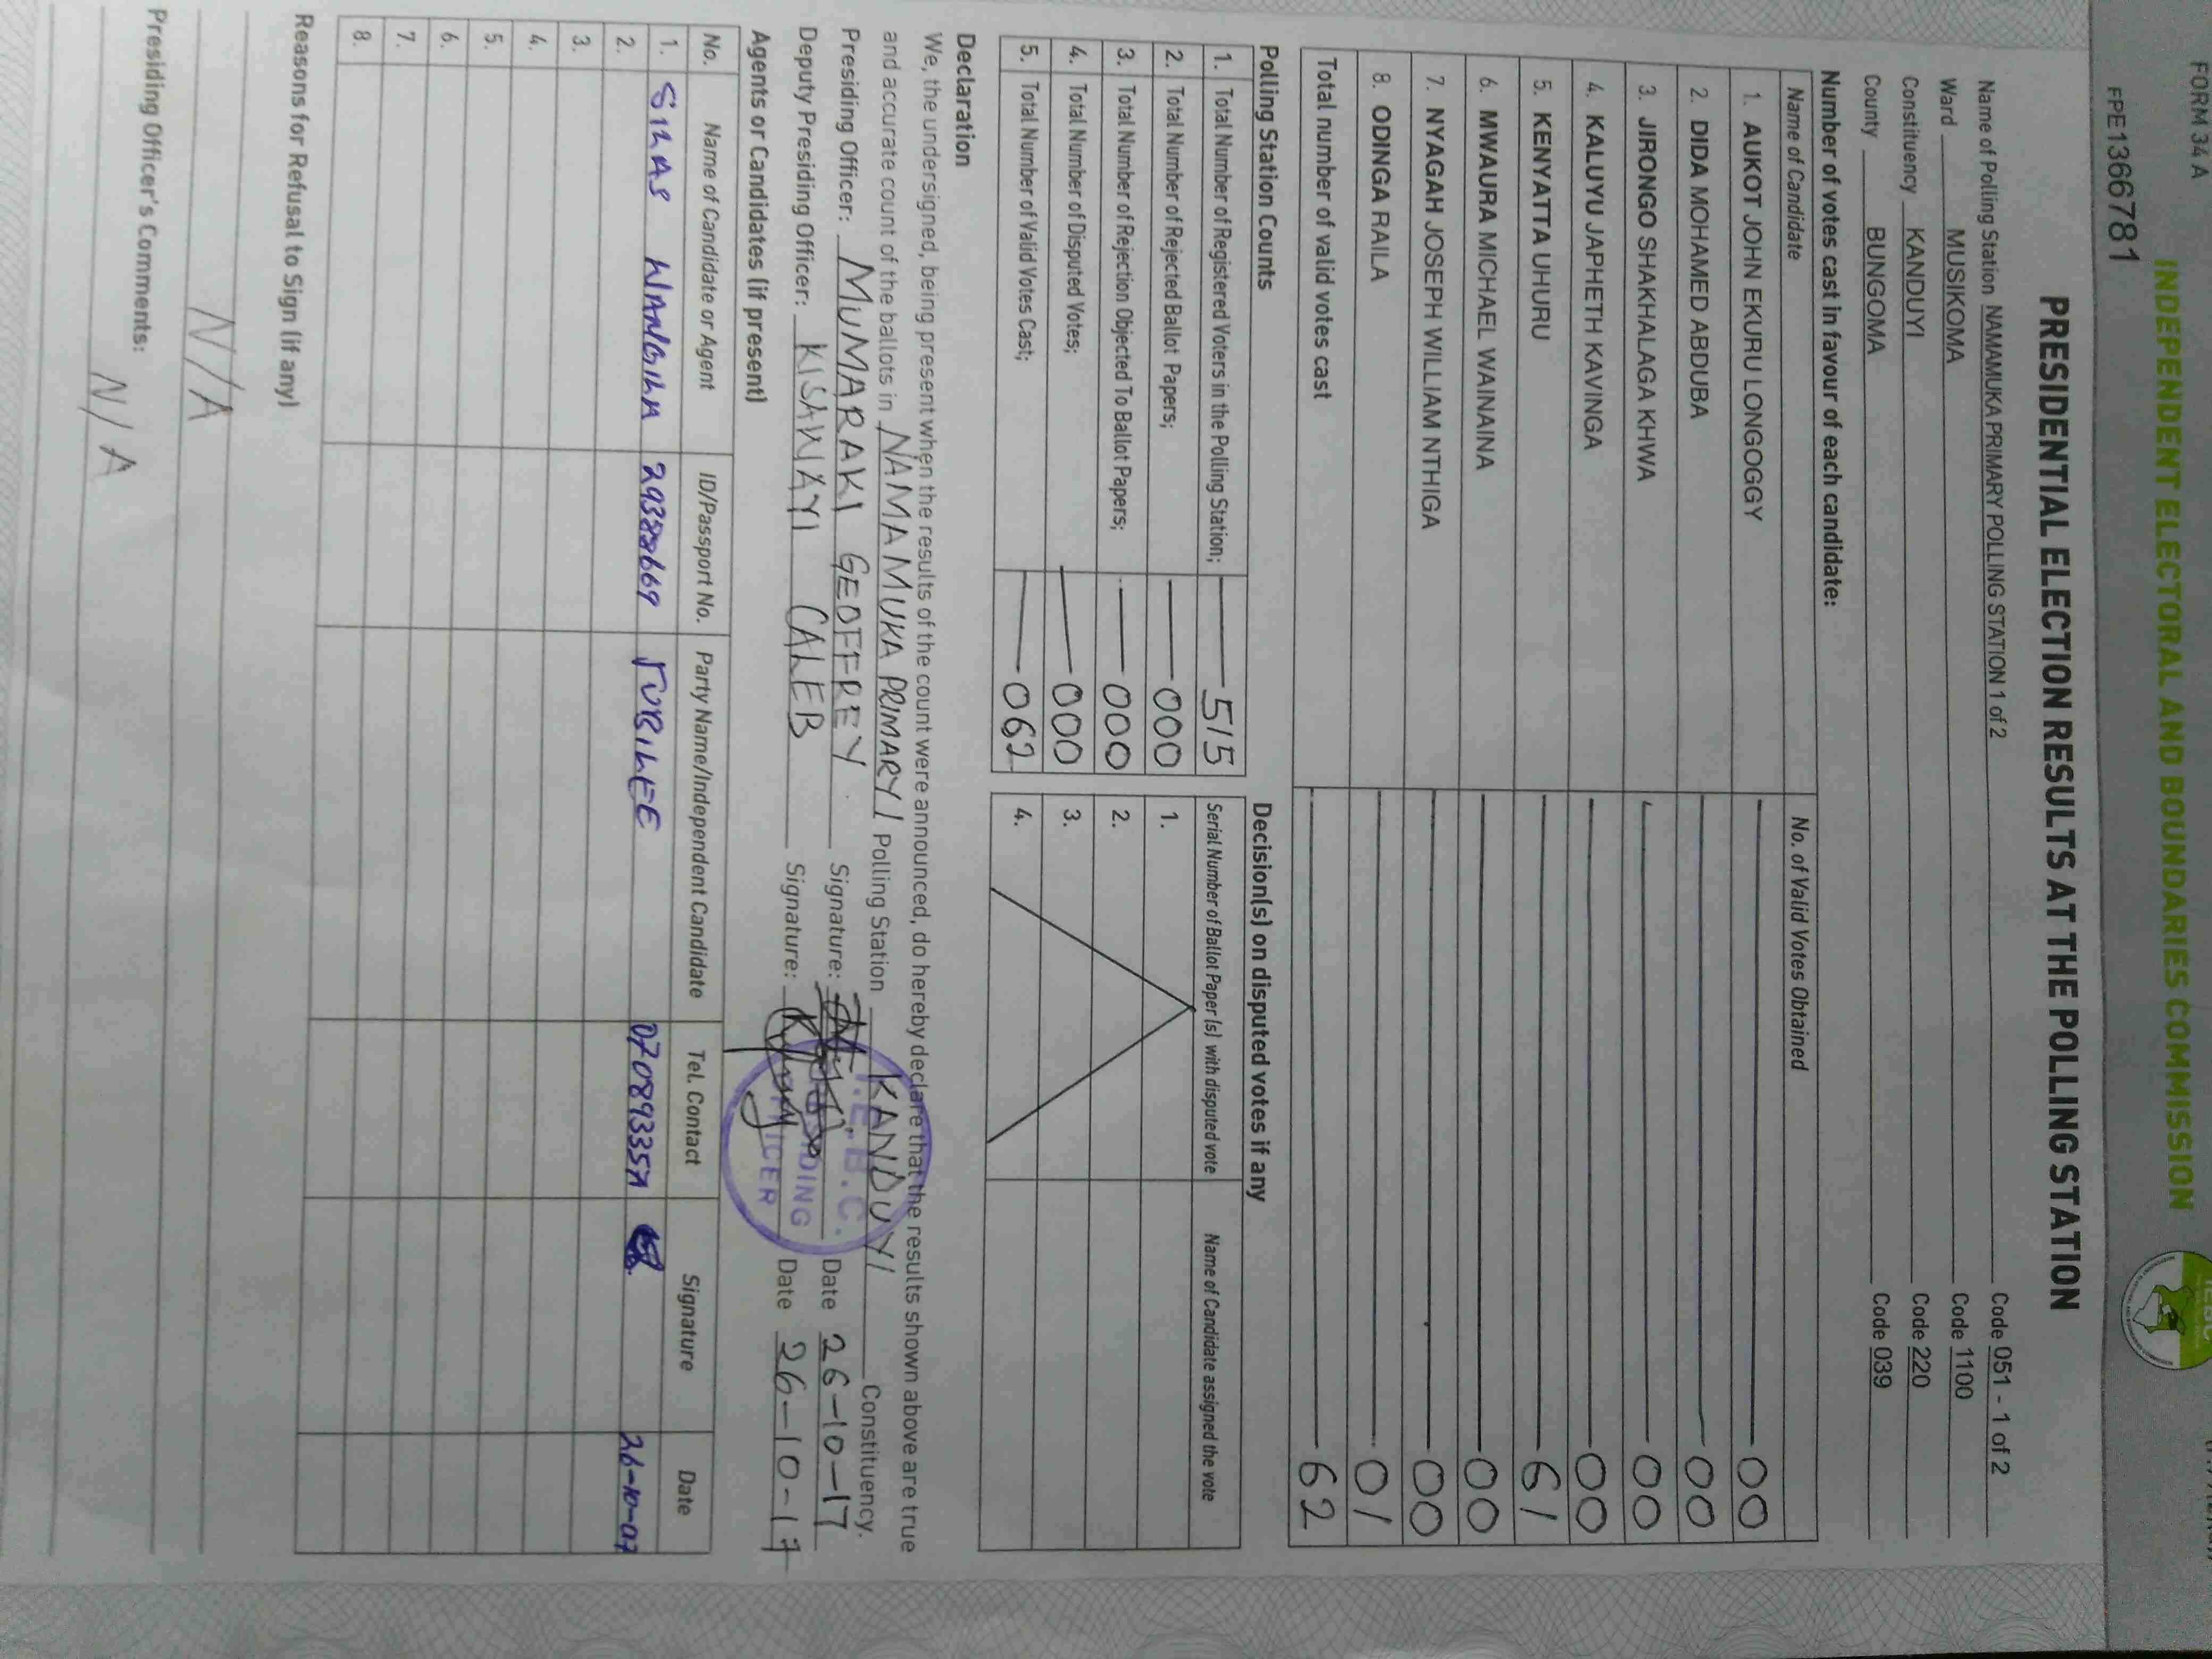 FORM 34 A
INDEPENDENT ELECTORAL AND BOUNDARIES COMMISSION
FPE1366781
PRESIDENTIAL ELECTION RESULTS AT THE POLLING STATION
Name of Polling Station NAMAMUKA PRIMARY POLLING STATION 1 of 2 Code 051 - 1 of 2
Ward MUSIKOMA Code 1100
Constituency KANDUYI Code 220
County BUNGOMA Code 039
Number of votes cast in favour of each candidate:
Name of Candidate No. of Valid Votes Obtained
1. AUKOT JOHN EKURU LONGOGGY 00
2. DIDA MOHAMED ABDUBA 00
3. JIRONGO SHAKHALAGA KHWA 00
4. KALUYU JAPHETH KAVINGA 00
5. KENYATTA UHURU 61
6. MWAURA MICHAEL WAINAINA 00
7. NYAGAH JOSEPH WILLIAM NTHIGA 00
8. ODINGA RAILA 01
Total number of valid votes cast 62
Polling Station Counts Decision(s) on disputed votes if any
1. Total Number of Registered Voters in the Polling Station; 515 Serial Number of Ballot Paper (s) with disputed vote Name of Candidate assigned the vote
2. Total Number of Rejected Ballot Papers; 000 1.
3. Total Number of Rejection Objected To Ballot Papers; 000 2.
4. Total Number of Disputed Votes; 000 3.
5. Total Number of Valid Votes Cast; 062 4.
Declaration
We, the undersigned, being present when the results of the count were announced, do hereby declare that the results shown above are true
and accurate count of the ballots in NAMAMUKA PRIMARY 1 Polling Station KANDUYI Constituency.
Presiding Officer: MUMARAKI GEOFFREY Signature: Date 26-10-17
Deputy Presiding Officer: KISAWAYI CALEB Signature: Date 26-10-17
I.E.B.C.
PRESIDING
OFFICER
Agents or Candidates (if present)
No. Name of Candidate or Agent ID/Passport No. Party Name/Independent Candidate Tel. Contact Signature Date
1. SILAS WANGILA JUBILEE 26-10-07
2.
3.
4.
5.
6.
7.
8.
Reasons for Refusal to Sign (if any)
N/A
Presiding Officer's Comments:
N/A